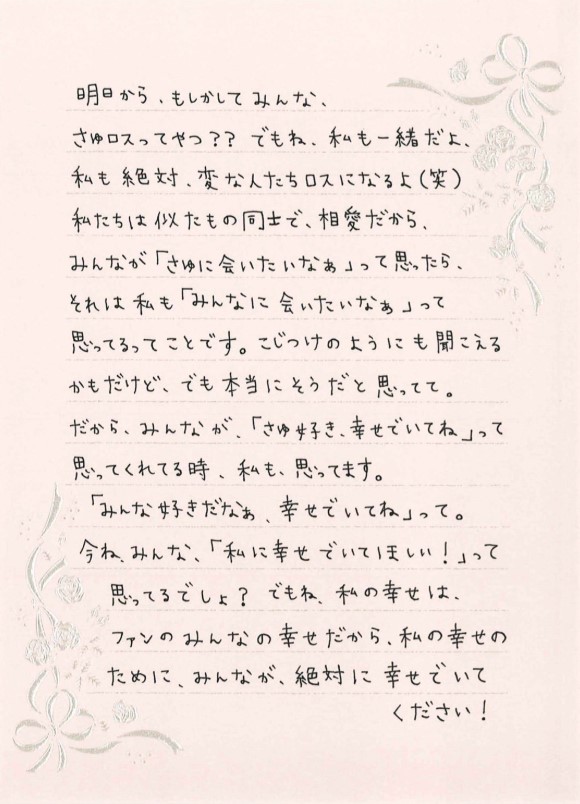 明日から、もしかして みんな、
さゅロスってやつ?? でもね、私も一緒だよ、
私も絶対、変な人たちロスになるよ(笑)
私たちは似たもの同士で、相愛だから、
みんなが「さゅに会いたいなぁ」って思ったら、
それは私も「みんなに会いたいなぁ」って
思ってるってことです。こじつけのようにも聞こえる
かもだけど、でも本当にそうだと思ってて。
だから、みんなが、「さゅ好き、幸せでいてね」って
思ってくれてる時、私も、思ってます。
「みんな好きだなぁ、幸せでいてね」って。
今ね、みんな、「私に幸せでいてほしい!」って
思ってるでしょ? でもね、私の幸せは、
ファンのみんなの幸せだから、私の幸せの
ために、みんなが、絶対に幸せでいて
ください!